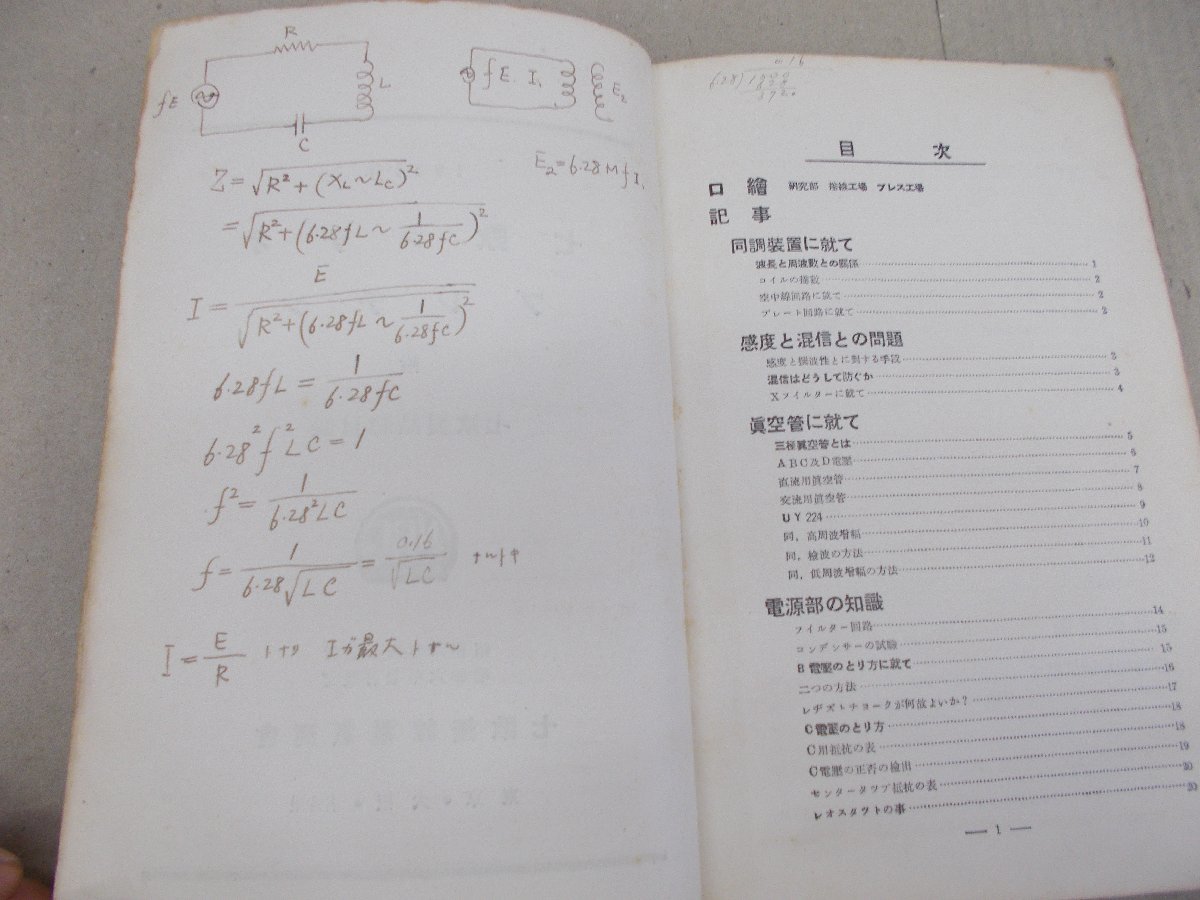 R
fE
L
C
fE I₁
E₂
E₂=6.28Mf I₁
Z=√(R²+(X_L～L_C)²)
=√(R²+(6.28fL～1/6.28fC)²)
I=E/√(R²+(6.28fL～1/6.28fC)²)
6.28fL=1/6.28fC
6.28²f²LC=1
f²=1/6.28²LC
f=1/6.28√LC=0.16/√LC ナルトキ
I=E/R トナリ Iガ最大トナル
0.16
6.28)1000
目 次
口 繪 研究部 捲線工場 プレス工場
記 事
同調装置に就て
波長と周波数との關係 1
コイルの捲數 2
空中線回路に就て 2
プレート回路に就て 2
感度と混信との問題
感度と撰波性とに對する手段 3
混信はどうして防ぐか 3
Xフイルターに就て 4
眞空管に就て
三極眞空管とは 5
ABC及D電壓 6
直流用眞空管 7
交流用眞空管 8
UY 224 9
同，高周波增幅 10
同，檢波の方法 11
同，低周波增幅の方法 12
電源部の知識
フイルター回路 14
コンデンサーの試驗 15
B電壓のとり方に就て 15
二つの方法 16
レヂストチヨークが何故よいか？ 17
C電壓のとり方 18
C用抵抗の表 18
C電壓の正否の檢出 19
センタータツプ抵抗の表 20
レオスタツトの事 20
— 1 —